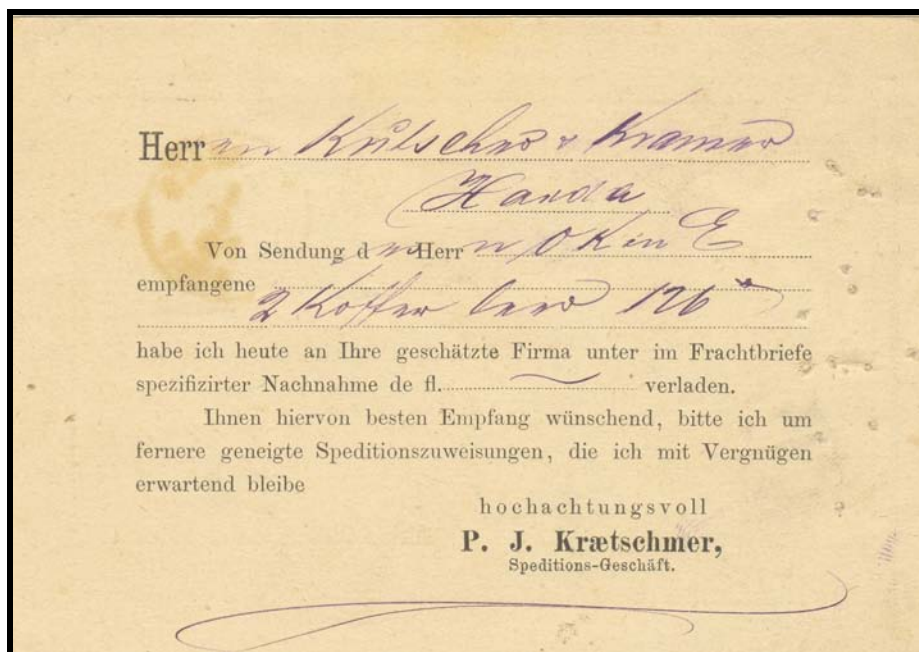 Herren Kutscher & Kramer
Haida
Von Sendung der Herrn O K in E
empfangene
2 Koffer 126
habe ich heute an Ihre geschätzte Firma unter im Frachtbriefe
spezifizirter Nachnahme de fl. verladen.
Ihnen hiervon besten Empfang wünschend, bitte ich um
fernere geneigte Speditionszuweisungen, die ich mit Vergnügen
erwartend bleibe
hochachtungsvoll
P. J. Krætschmer,
Speditions-Geschäft.